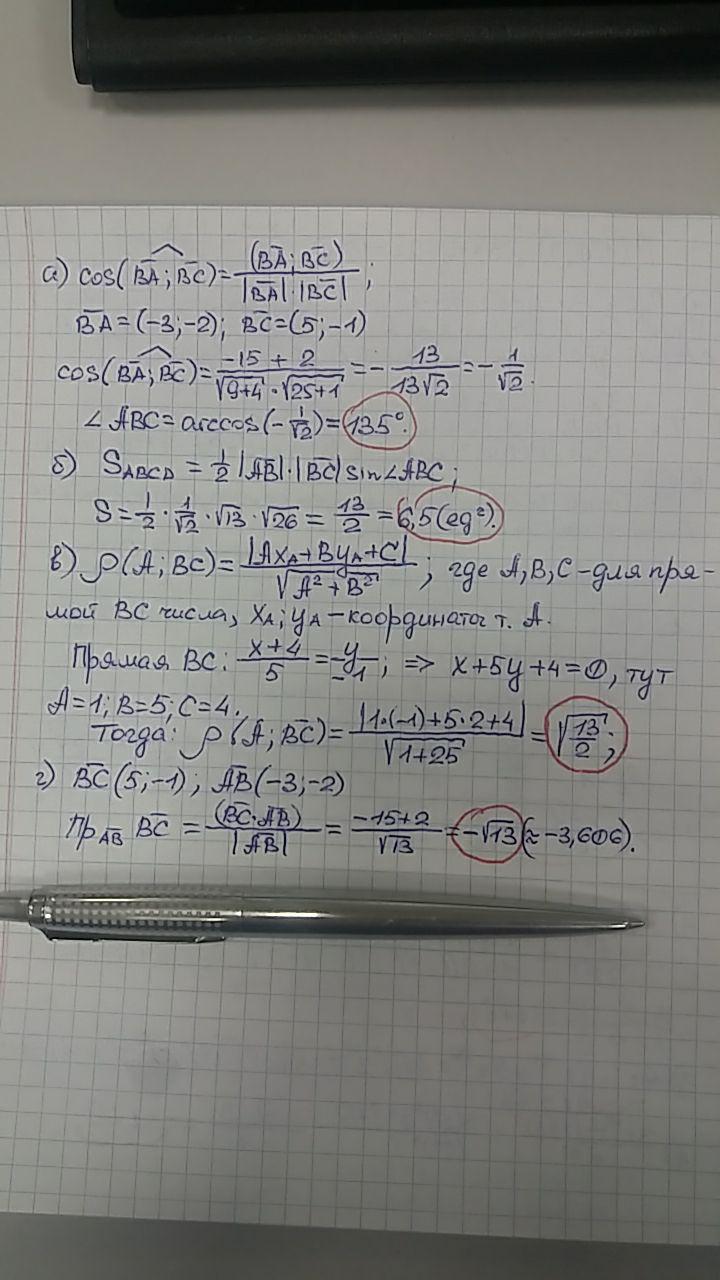 а) cos(B̅A̅; B̅C̅) = (B̅A̅; B̅C̅) / |B̅A̅|·|B̅C̅| ;
B̅A̅ = (-3; -2); B̅C̅ = (5; -1)
cos(B̅A̅; B̅C̅) = (-15 + 2) / (√(9+4) · √(25+1)) = - 13 / (13√2) = - 1/√2.
∠ABC = arccos(-1/√2) = 135°.
б) S_ABCD = 1/2 |A̅B̅|·|B̅C̅| sin∠ABC ;
S = 1/2 · 1/√2 · √13 · √26 = 13/2 = 6,5 (ед²).
в) ρ(A; BC) = |Ax_A + By_A + C| / √(A² + B²) ; где A, B, C - для пря-
мой BC числа, x_A; y_A - координаты т. A.
Прямая BC: (x+4)/5 = y/-1 ; => x+5y+4=0, тут
A=1; B=5; C=4.
Тогда: ρ(A; B̅C̅) = |1·(-1)+5·2+4| / √(1+25) = √(13/2) ;
г) B̅C̅(5; -1) ; A̅B̅(-3; -2)
Пр_A̅B̅ B̅C̅ = (B̅C̅·A̅B̅) / |A̅B̅| = (-15+2) / √13 = -√13 (≈ -3,606).